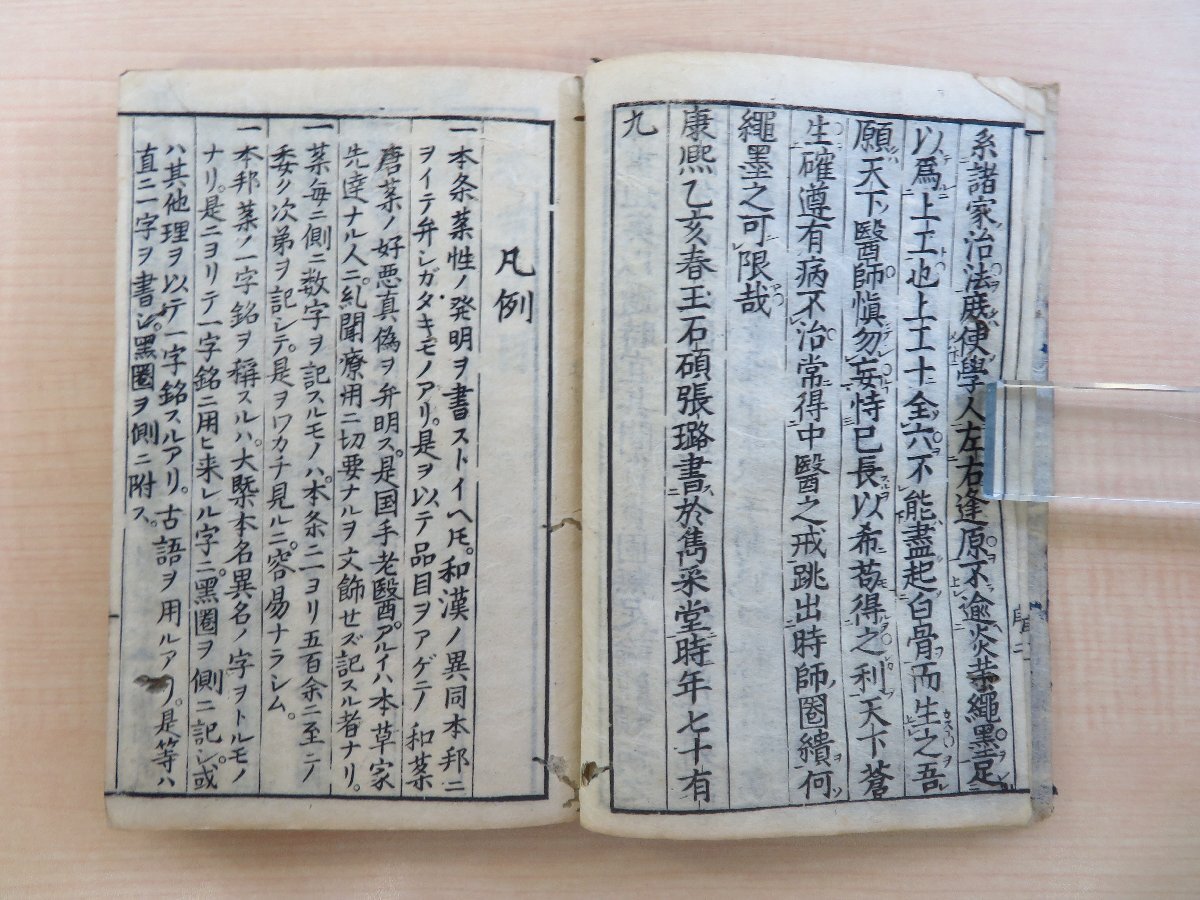 系諸家治法庶使學人左右逢原不逾炎黄繩墨足
以爲上工也上工十全六不能盡起白骨而生之吾
願天下醫師愼勿妄恃已長以希苟得之利天下蒼
生確遵有病不治常得中醫之戒跳出時師圈繢何
繩墨之可限哉
康熙乙亥春王石碩張璐書於雋采堂時年七十有
九
凡例
一本条薬性ノ発明ヲ書ストイヘモ。和漢ノ異同本邦ニ
ヲイテ弁シガタキモノアリ。是ヲ以テ品目ヲアゲテ和薬
唐薬ノ好悪真偽ヲ弁明ス。是国手老醫アルイハ本草家
先達ナル人ニ糺聞療用ニ切要ナルヲ文飾せズ記スル者ナリ。
一薬毎ニ側ニ数字ヲ記スルモノハ。本条ニ一ヨリ五百余ニ至ニノ
委ク次第ヲ記シテ。是ヲワカチ見ルニ容易ナラシム。
一本邦薬ノ一字銘ヲ称スルハ。大槩本名異名ノ字ヲトルモノ
ナリ。是ニヨリテ一字銘ニ用ヒ来レル字ニ。黑圈ヲ側ニ記シ。或
ハ其他理ヲ以テ一字銘スルアリ。古語ヲ用ルアリ。是等ハ
直ニ一字ヲ書シ。黑圈ヲ側ニ附ス。